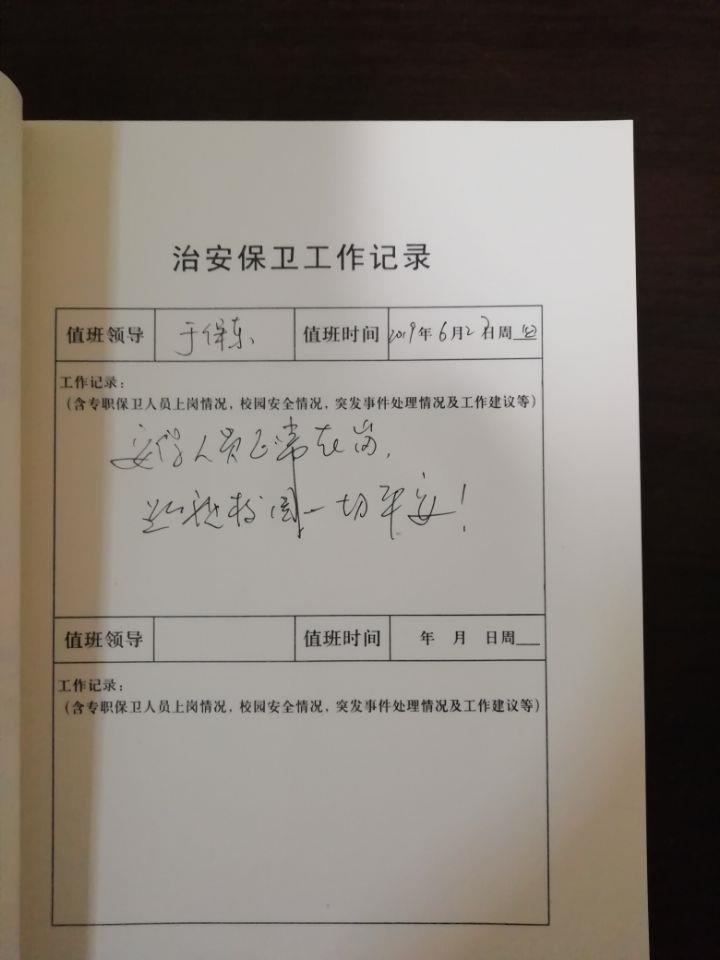 治安保卫工作记录
值班领导 于保东 值班时间 2019年6月27日周四
工作记录：
（含专职保卫人员上岗情况，校园安全情况，突发事件处理情况及工作建议等）
安保人员正常在岗，
校园一切平安！
值班领导 值班时间 年 月 日周
工作记录：
（含专职保卫人员上岗情况，校园安全情况，突发事件处理情况及工作建议等）